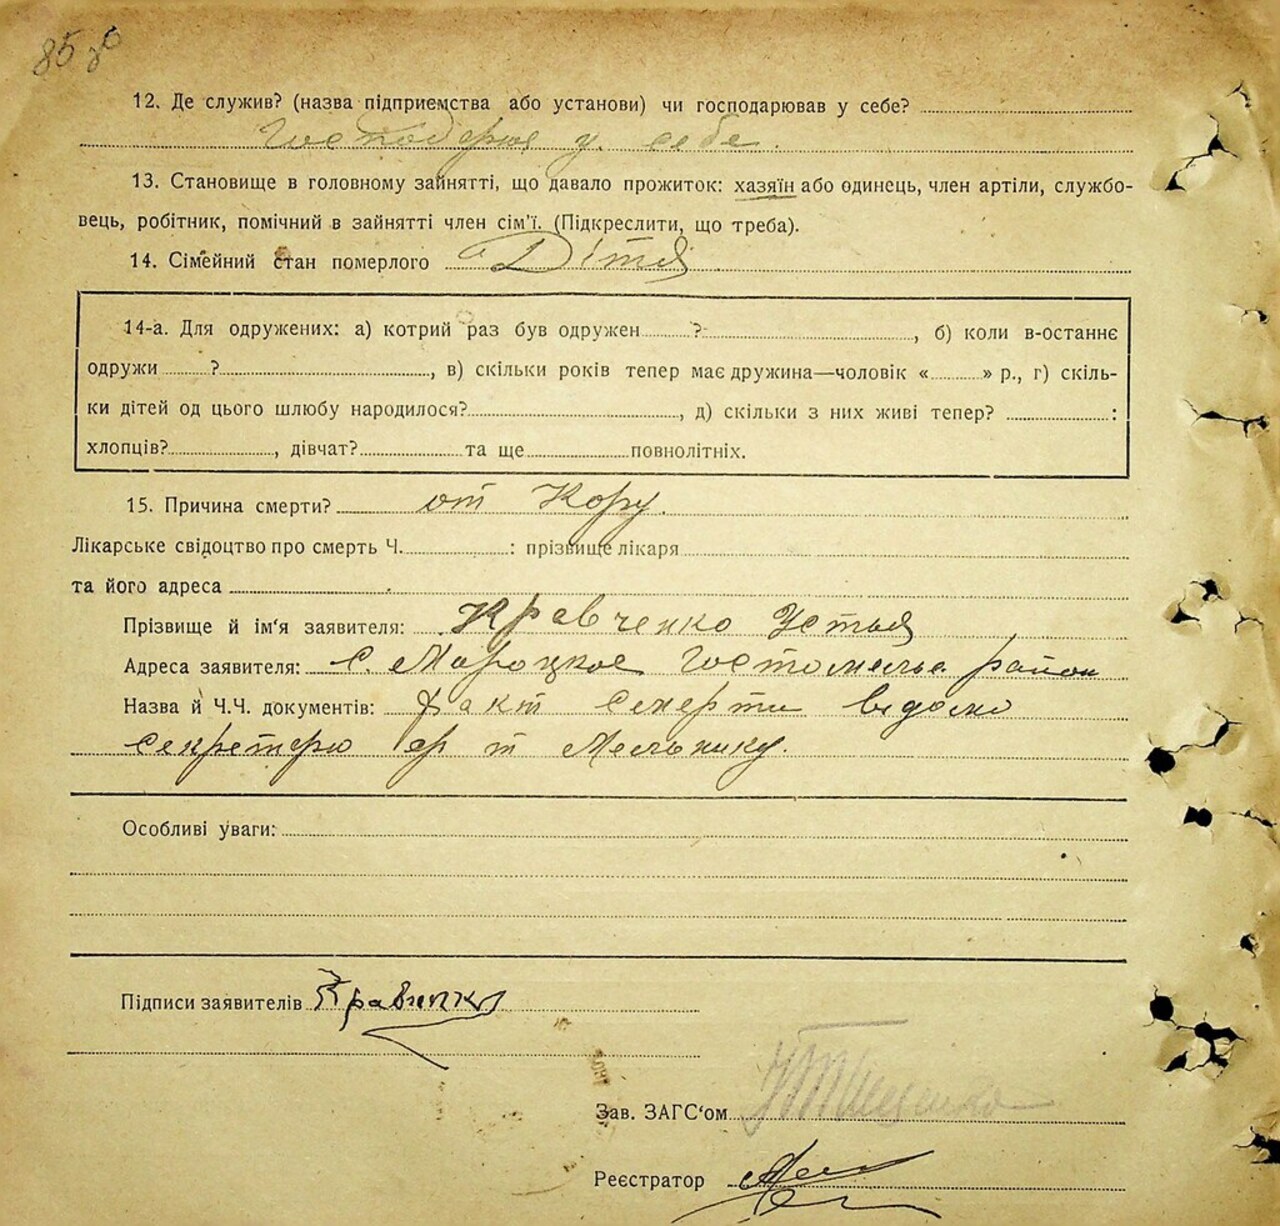 85 зв
12. Де служив? (назва підприємства або установи) чи господарював у себе?
Господарює у себе.
13. Становище в головному зайнятті, що давало прожиток: хазяїн або одинець, член артіли, службо-
вець, робітник, помічний в зайнятті член сім'ї. (Підкреслити, що треба).
14. Сімейний стан померлого Дітя
14-а. Для одружених: а) котрий раз був одружен ? , б) коли в-останнє
одружи ? , в) скільки років тепер має дружина—чоловік « » р., г) скіль-
ки дітей од цього шлюбу народилося? , д) скільки з них живі тепер? :
хлопців? , дівчат? та ще повнолітніх.
15. Причина смерти? от Кору.
Лікарське свідоцтво про смерть Ч. : прізвище лікаря
та його адреса .
Прізвище й ім'я заявителя: Кравченко Устья
Адреса заявителя: С. Мороцкое Гостомельс район
Назва й Ч.Ч. документів: факт смерти відомо
секретарю с/р т Мельнику.
Особливі уваги:
Підписи заявителів Кравченко
Зав. ЗАГС'ом
Реєстратор